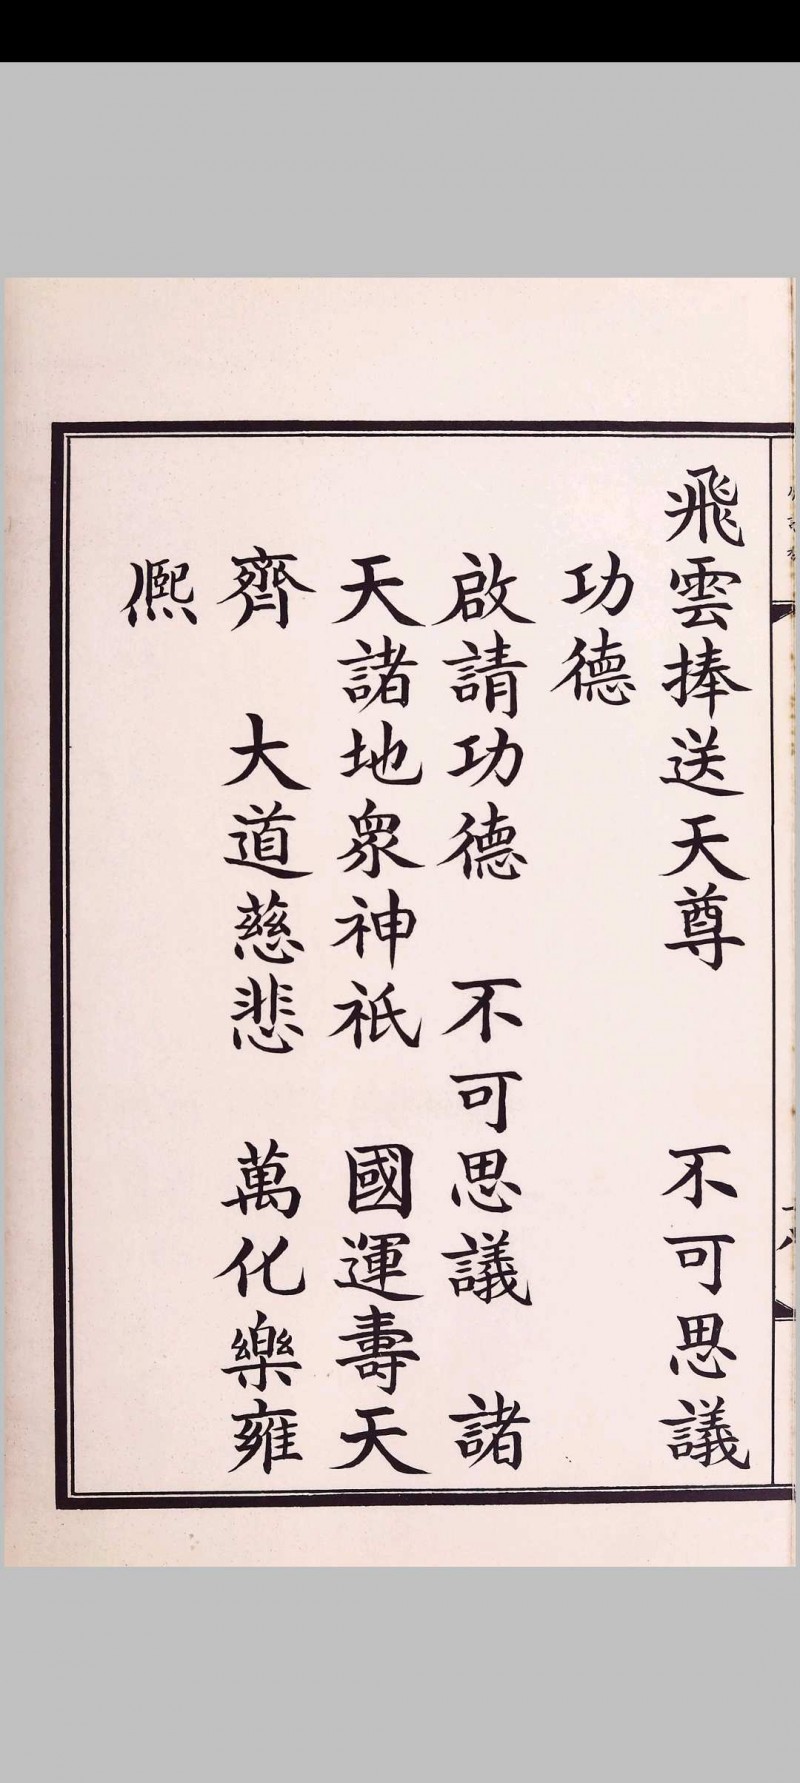 飛雲捧送天尊 不可思議
功德
啟請功德 不可思議 諸
天諸地眾神祇 國運壽天
齊 大道慈悲 萬化樂雍
熙